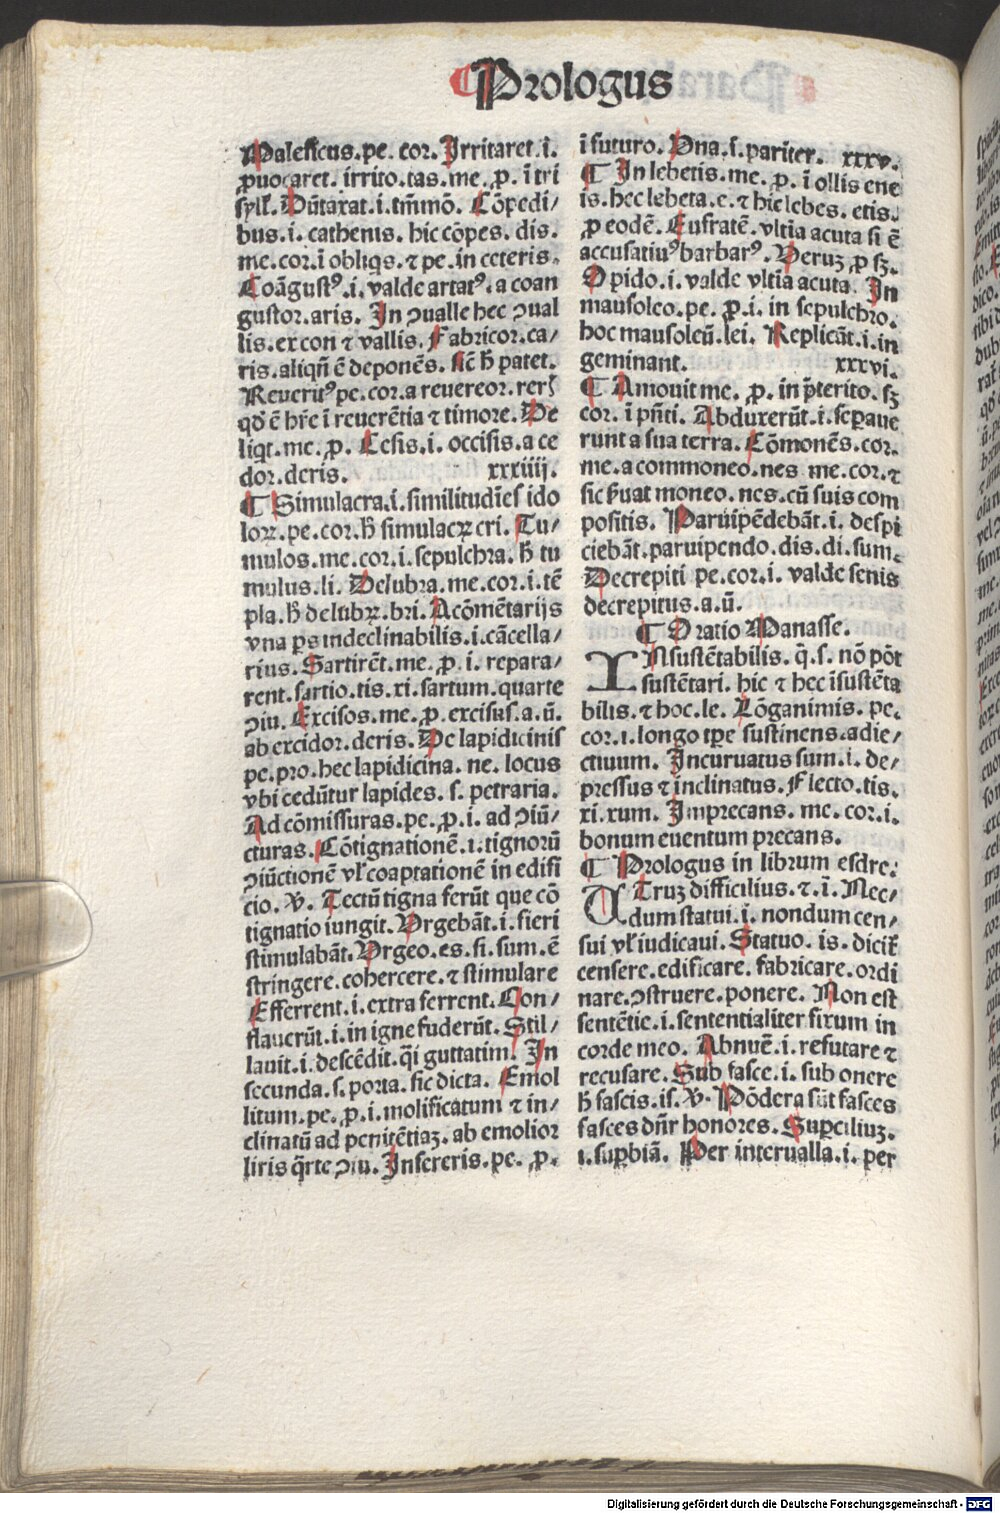 Prologus
Maleficus.pe. cor. Irritaret.i.
ꝓuocaret. irrito.tas.me.ꝓ. i tri
syll. Dūtaxat.i.tm̄mō. Cōpedi/
bus.i. cathenis. hic cōpes. dis.
me.cor.ī obliqs.⁊ pe.in ceteris.
Coāgustꝰ.i.valde artatꝰ.a coan
gustor.aris. In ↄualle hec ↄual
lis.ex con ⁊ vallis. Fabricor.ca/
ris.aliqn̄ ē deponēs. sic̄ h̄ patet.
Reueritꝰ pe.cor.a reuereor.rer
qd̓ ē hr̄e ī reuerētia ⁊ timore. De
liqt.me.ꝓ. Cesis.i. occisis.a ce
dor.deris. xxxiiij.
¶ Simulacra.i.similitudīes ido
loꝝ.pe.cor.h̄ simulacꝝ cri. Tu/
mulos.me.cor.i.sepulchra. h̄ tu
mulus.li. Delubra.me.cor.i.tē
pla.h̄ delubꝝ.bri. A cōmētarijs
vna ꝑs indeclinabilis.i.cācella/
rius. Sartirēt.me.ꝓ.i. repara/
rent.sartio.tis.xi.sartum.quarte
ↄiu. Excisos.me.ꝓ.excisus.a.ū.
ab excidor.deris. De lapidicinis
pe.pro.hec lapidicina. ne. locus
vbi cedūtur lapides. s. petraria.
Ad cōmissuras.pe.ꝓ.i. ad ↄiū/
cturas. Cōtignationē.i.tignorū
ↄiūctionē vl̓ coaptationē in edifi
cio. V. Tectū tigna ferūt que cō
tignatio iungit. Vrgebāt.i.fieri
stimulabāt. Vrgeo.es.si.sum.ē
stringere.cohercere.⁊ stimulare
Efferrent.i.extra ferrent. Con/
flauerūt.i.in igne fuderūt. Stil/
lauit.i.descēdit.q̄i guttatim. In
secunda.s.porta.sic dicta. Emol
litum.pe.ꝓ.i.molificatum ⁊ in/
clinatū ad penitētiaꝫ.ab emolior
liris q̄rte ↄiu. Insereris.pe. ꝓ.
i futuro. Vna.i.pariter. xxxv.
¶ In lebetis.me.ꝓ.i ollis ene
is.hec lebeta.e.⁊ hic lebes. etis.
ꝓ eodē. Eufratē.vltia acuta si ē
accusatiuꝰ barbarꝰ. Veruꝫ ꝓ sꝫ.
Opido.i.valde vltia acuta. In
mausoleo.pe. ꝓ.i. in sepulchro.
hoc mausoleū.lei. Replicāt.i.in
geminant. xxxvi.
¶ Amouit me. ꝓ. in p̄terito. sꝫ
cor. ī pn̄ti. Abduxerūt.i.seꝑaue
runt a sua terra. Cōmonēs.cor.
me.a commoneo.nes me.cor.⁊
sic ẜuat moneo.nes.cū suis com
positis. Paruipēdebāt.i. despi
ciebāt.paruipendo.dis.di.sum.
Decrepiti pe.cor.i. valde senis
decrepitus.a.ū.
¶ Oratio Manasse.
INsustētabilis. q̄.s. nō pōt
sustētari. hic ⁊ hec īsustēta
bilis.⁊ hoc.le. Lōganimis. pe.
cor.i.longo tꝑe sustinens.adie/
ctiuum. Incuruatus sum.i. de/
pressus ⁊ inclinatus. Flecto.tis.
xi.xum. Imprecans. me. cor.i.
bonum euentum precans.
¶ Prologus in librum esdre:
UTruꝫ difficilius.⁊.i. Nec/
dum statui.i. nondum cen/
sui vl̓ iudicaui. Statuo. is. dicit̓
censere.edificare. fabricare.ordi
nare.ↄstruere.ponere. Non est
sentētie.i.sententialiter fixum in
corde meo. Abnuē.i.refutare ⁊
recusare. Sub fasce.i.sub onere
h̄ fascis.is. V. Pōdera sūt fasces
fasces dn̄r honores. Suꝑciliuꝫ.
i.suꝑbiā. Per interualla.i. per
Digitalisierung gefördert durch die Deutsche Forschungsgemeinschaft - DFG